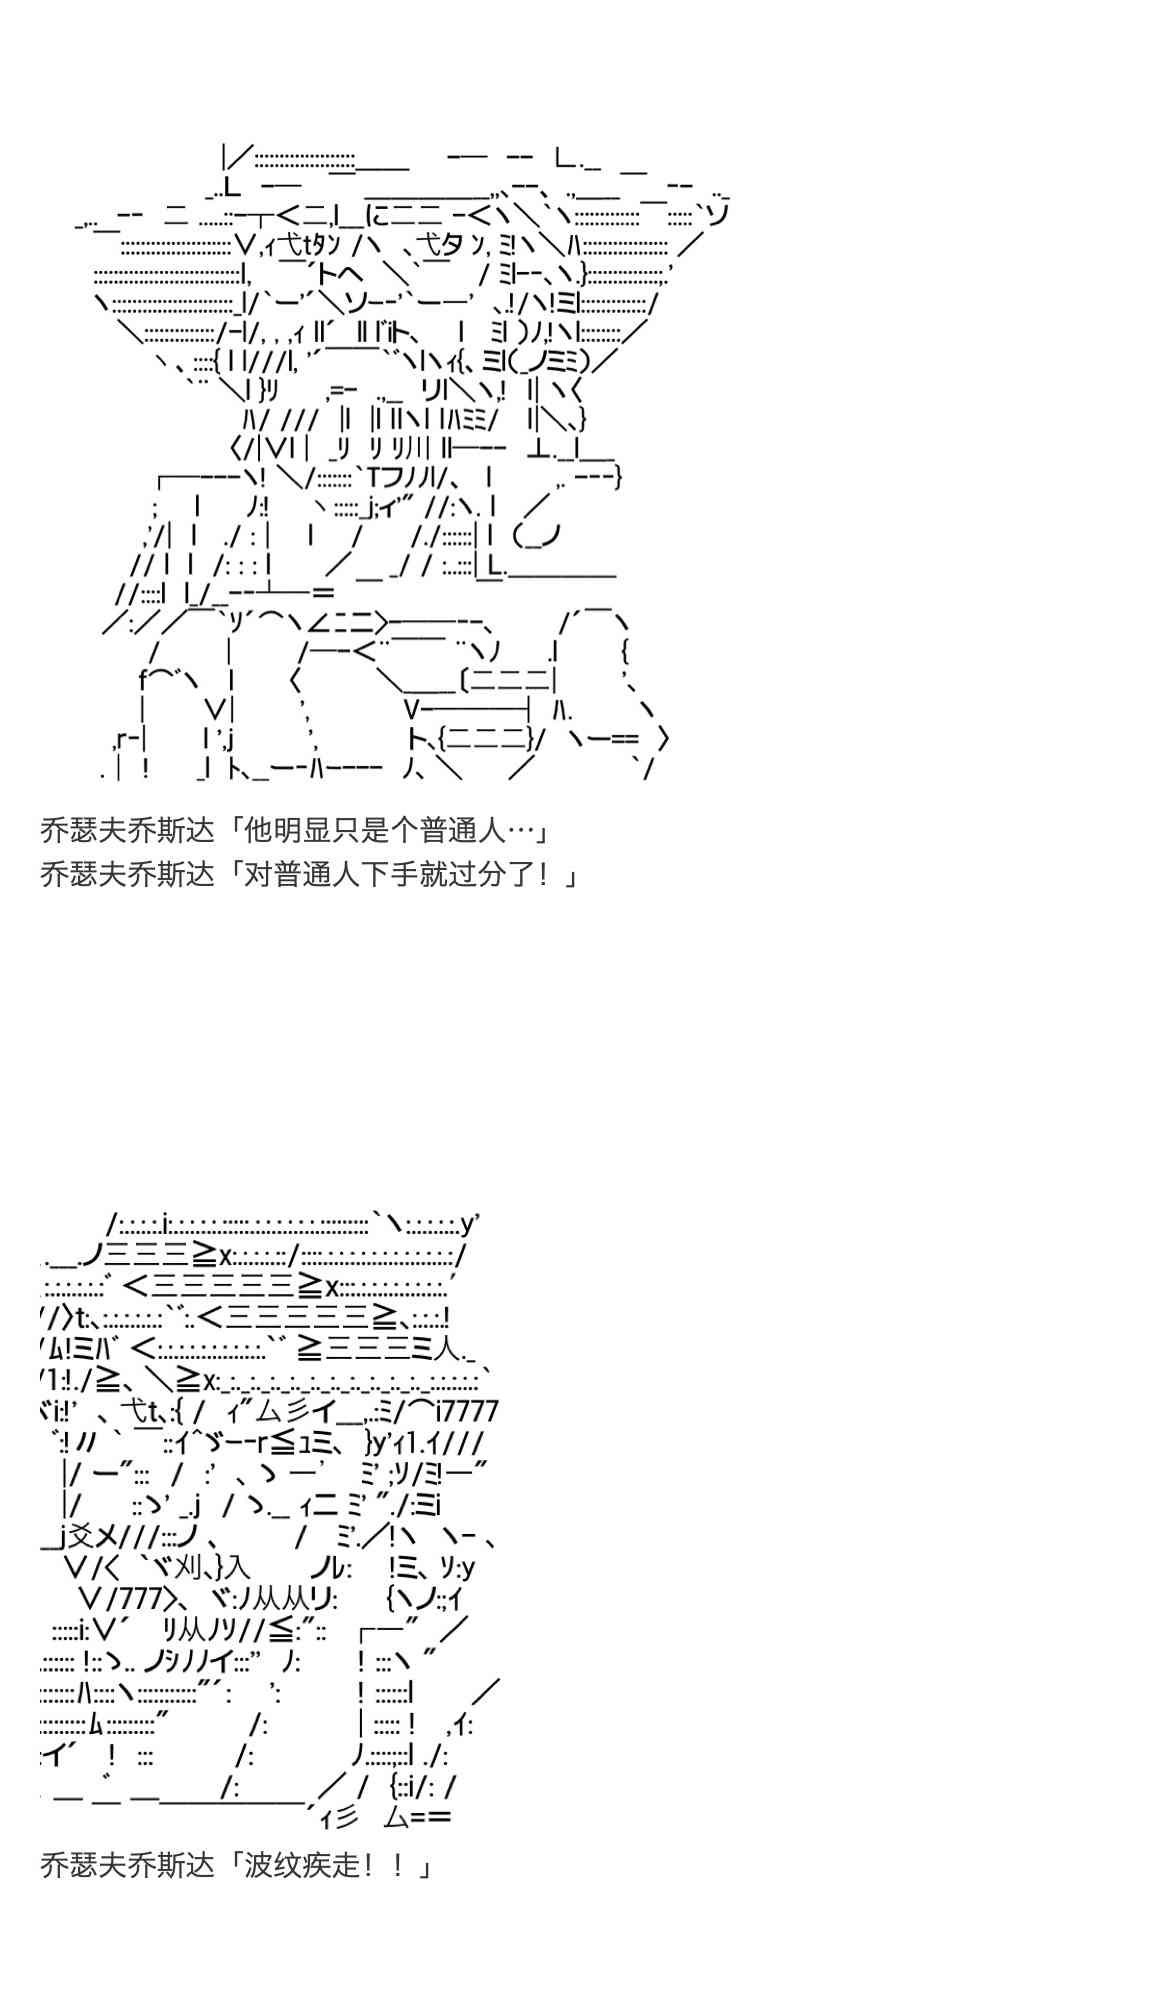 乔瑟夫乔斯达「他明显只是个普通人…」
乔瑟夫乔斯达「对普通人下手就过分了！」
乔瑟夫乔斯达「波纹疾走！！」